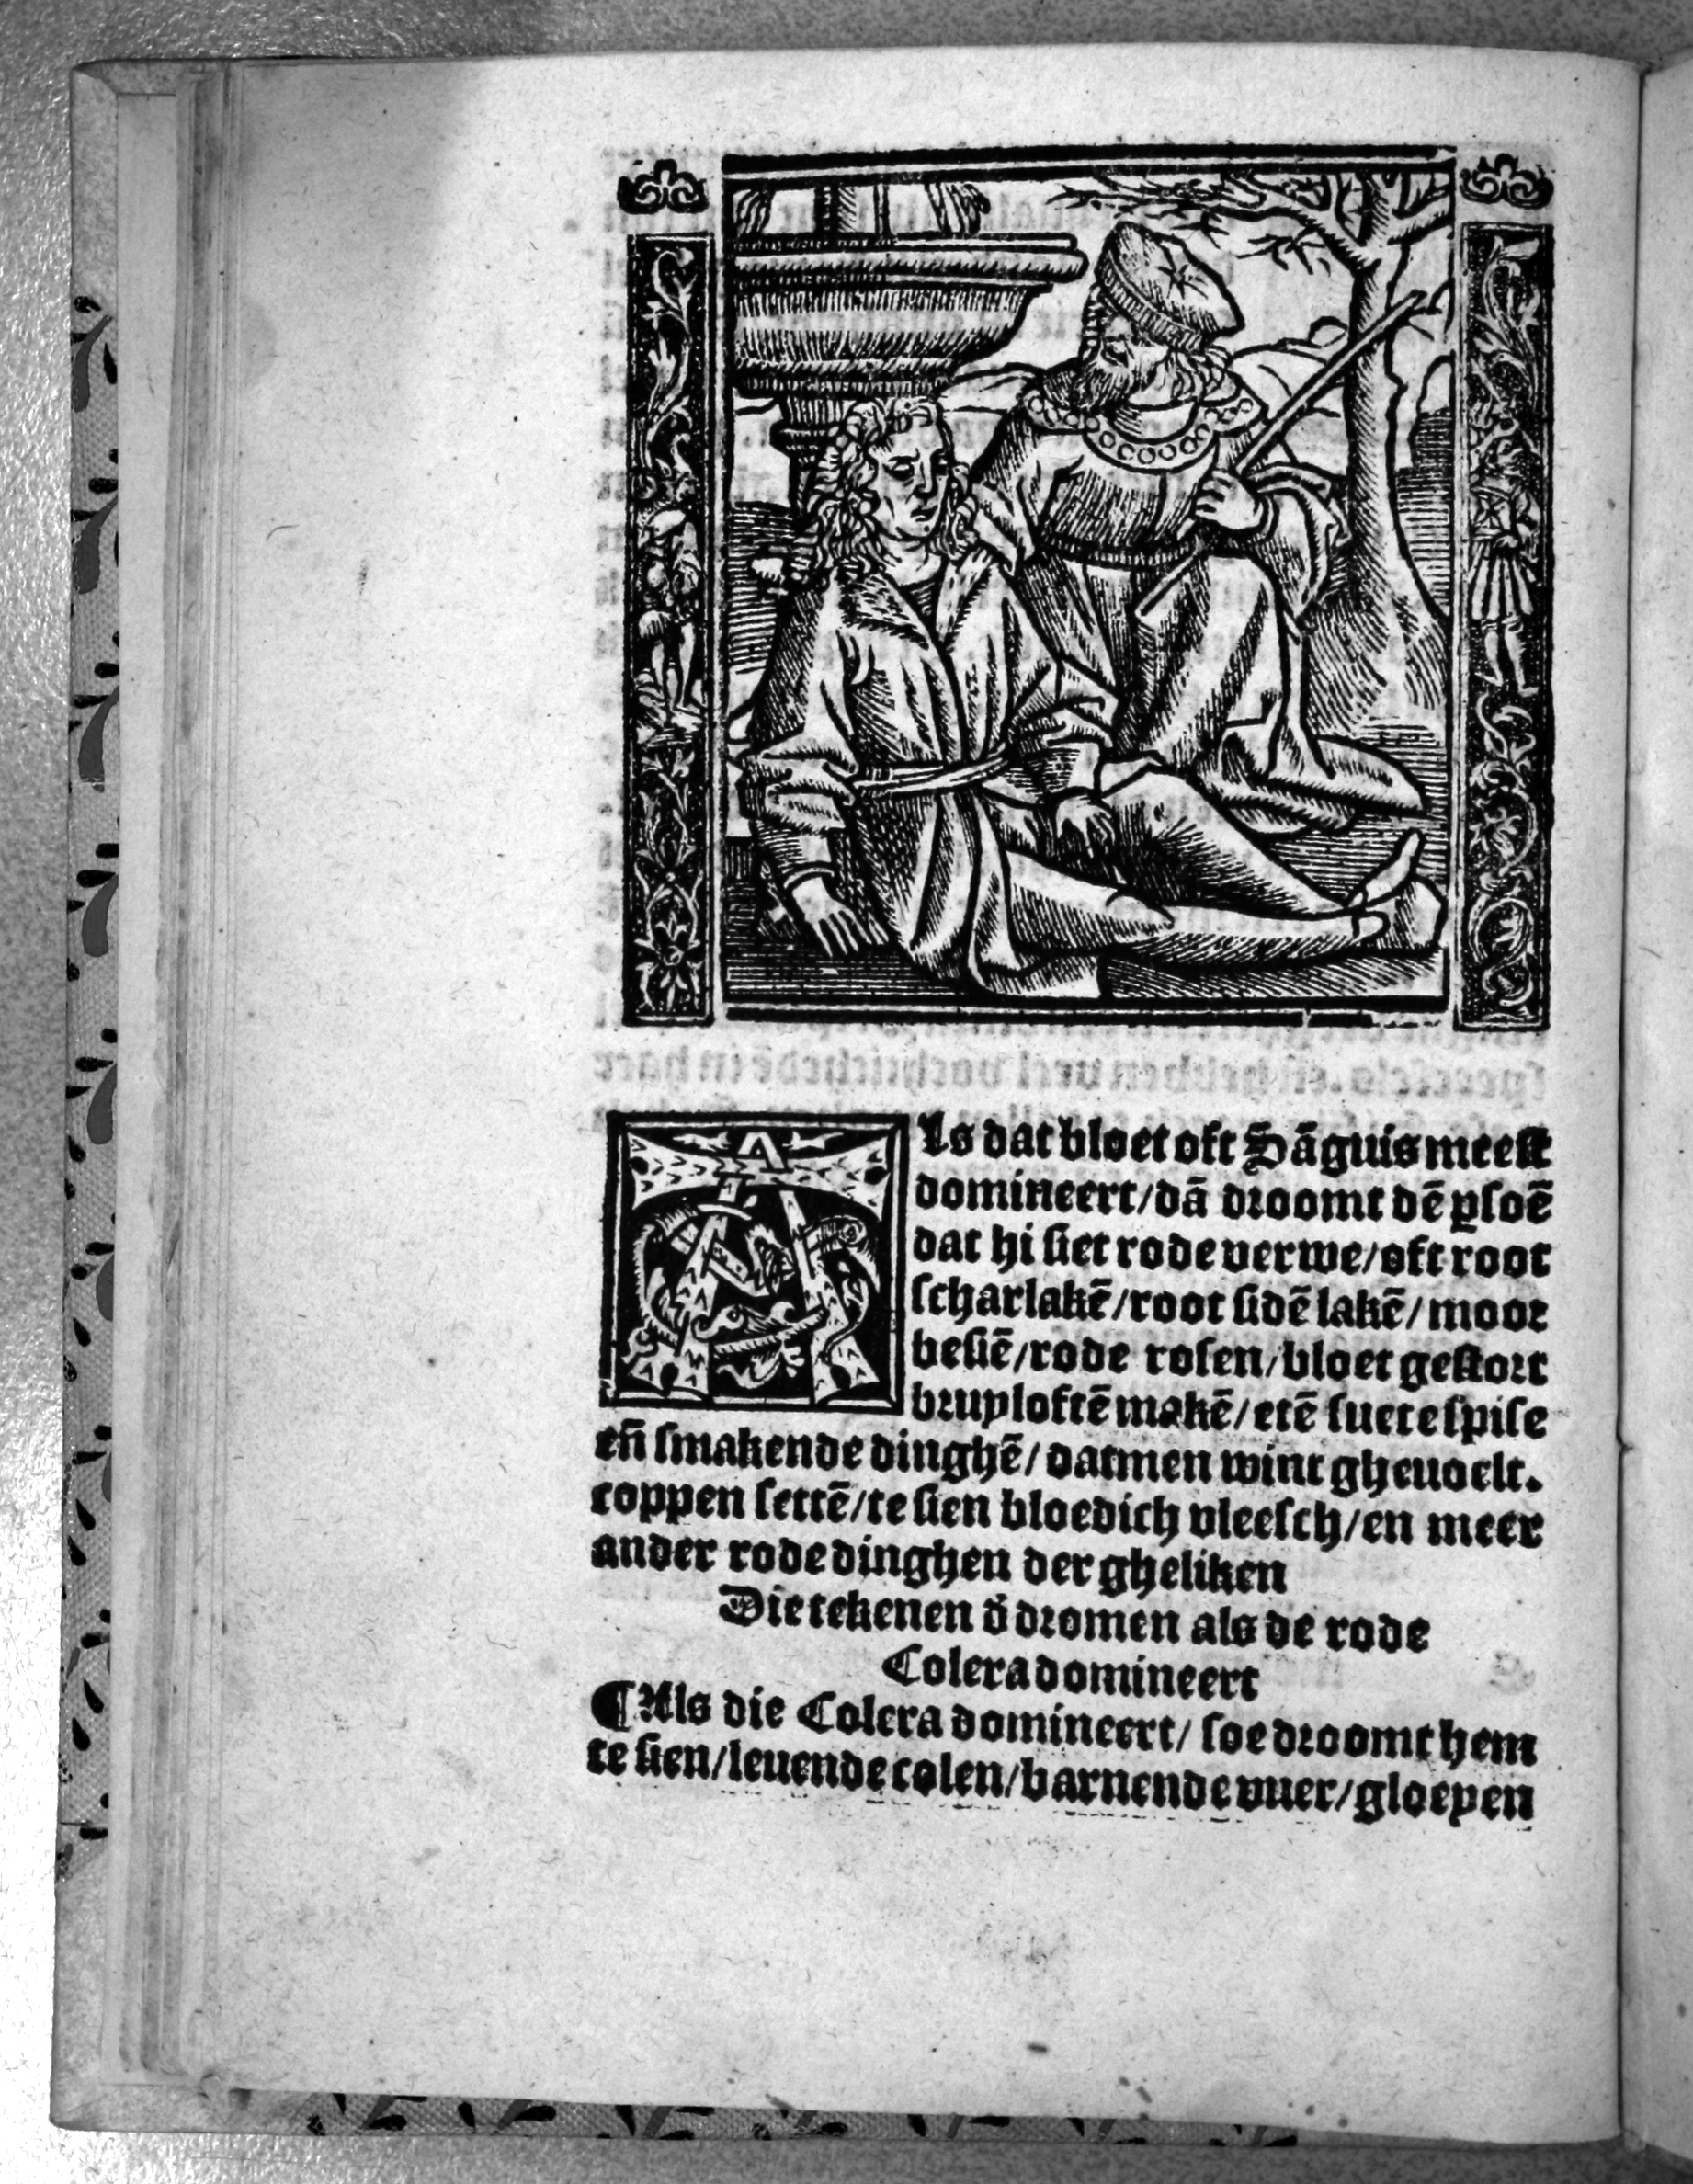 Als dat bloet oft Sāguis meest
domineert/dā droomt dē ꝑsoē
dat hi siet rode verwe/oft root
scharlakē/root sidē lakē/moor
besiē/rode rosen/bloet gestort
bruyloftē makē/etē suete spise
en̄ smakende dinghē/datmen wint gheuoelt.
coppen settē/te sien bloedich vleesch/en meer
ander rode dinghen der gheliken
Die tekenen d̄ dromen als de rode
Colera domineert
¶ Als die Colera domineert/ soe droomt hem
te sien/leuende colen/barnende vuer/gloeyen